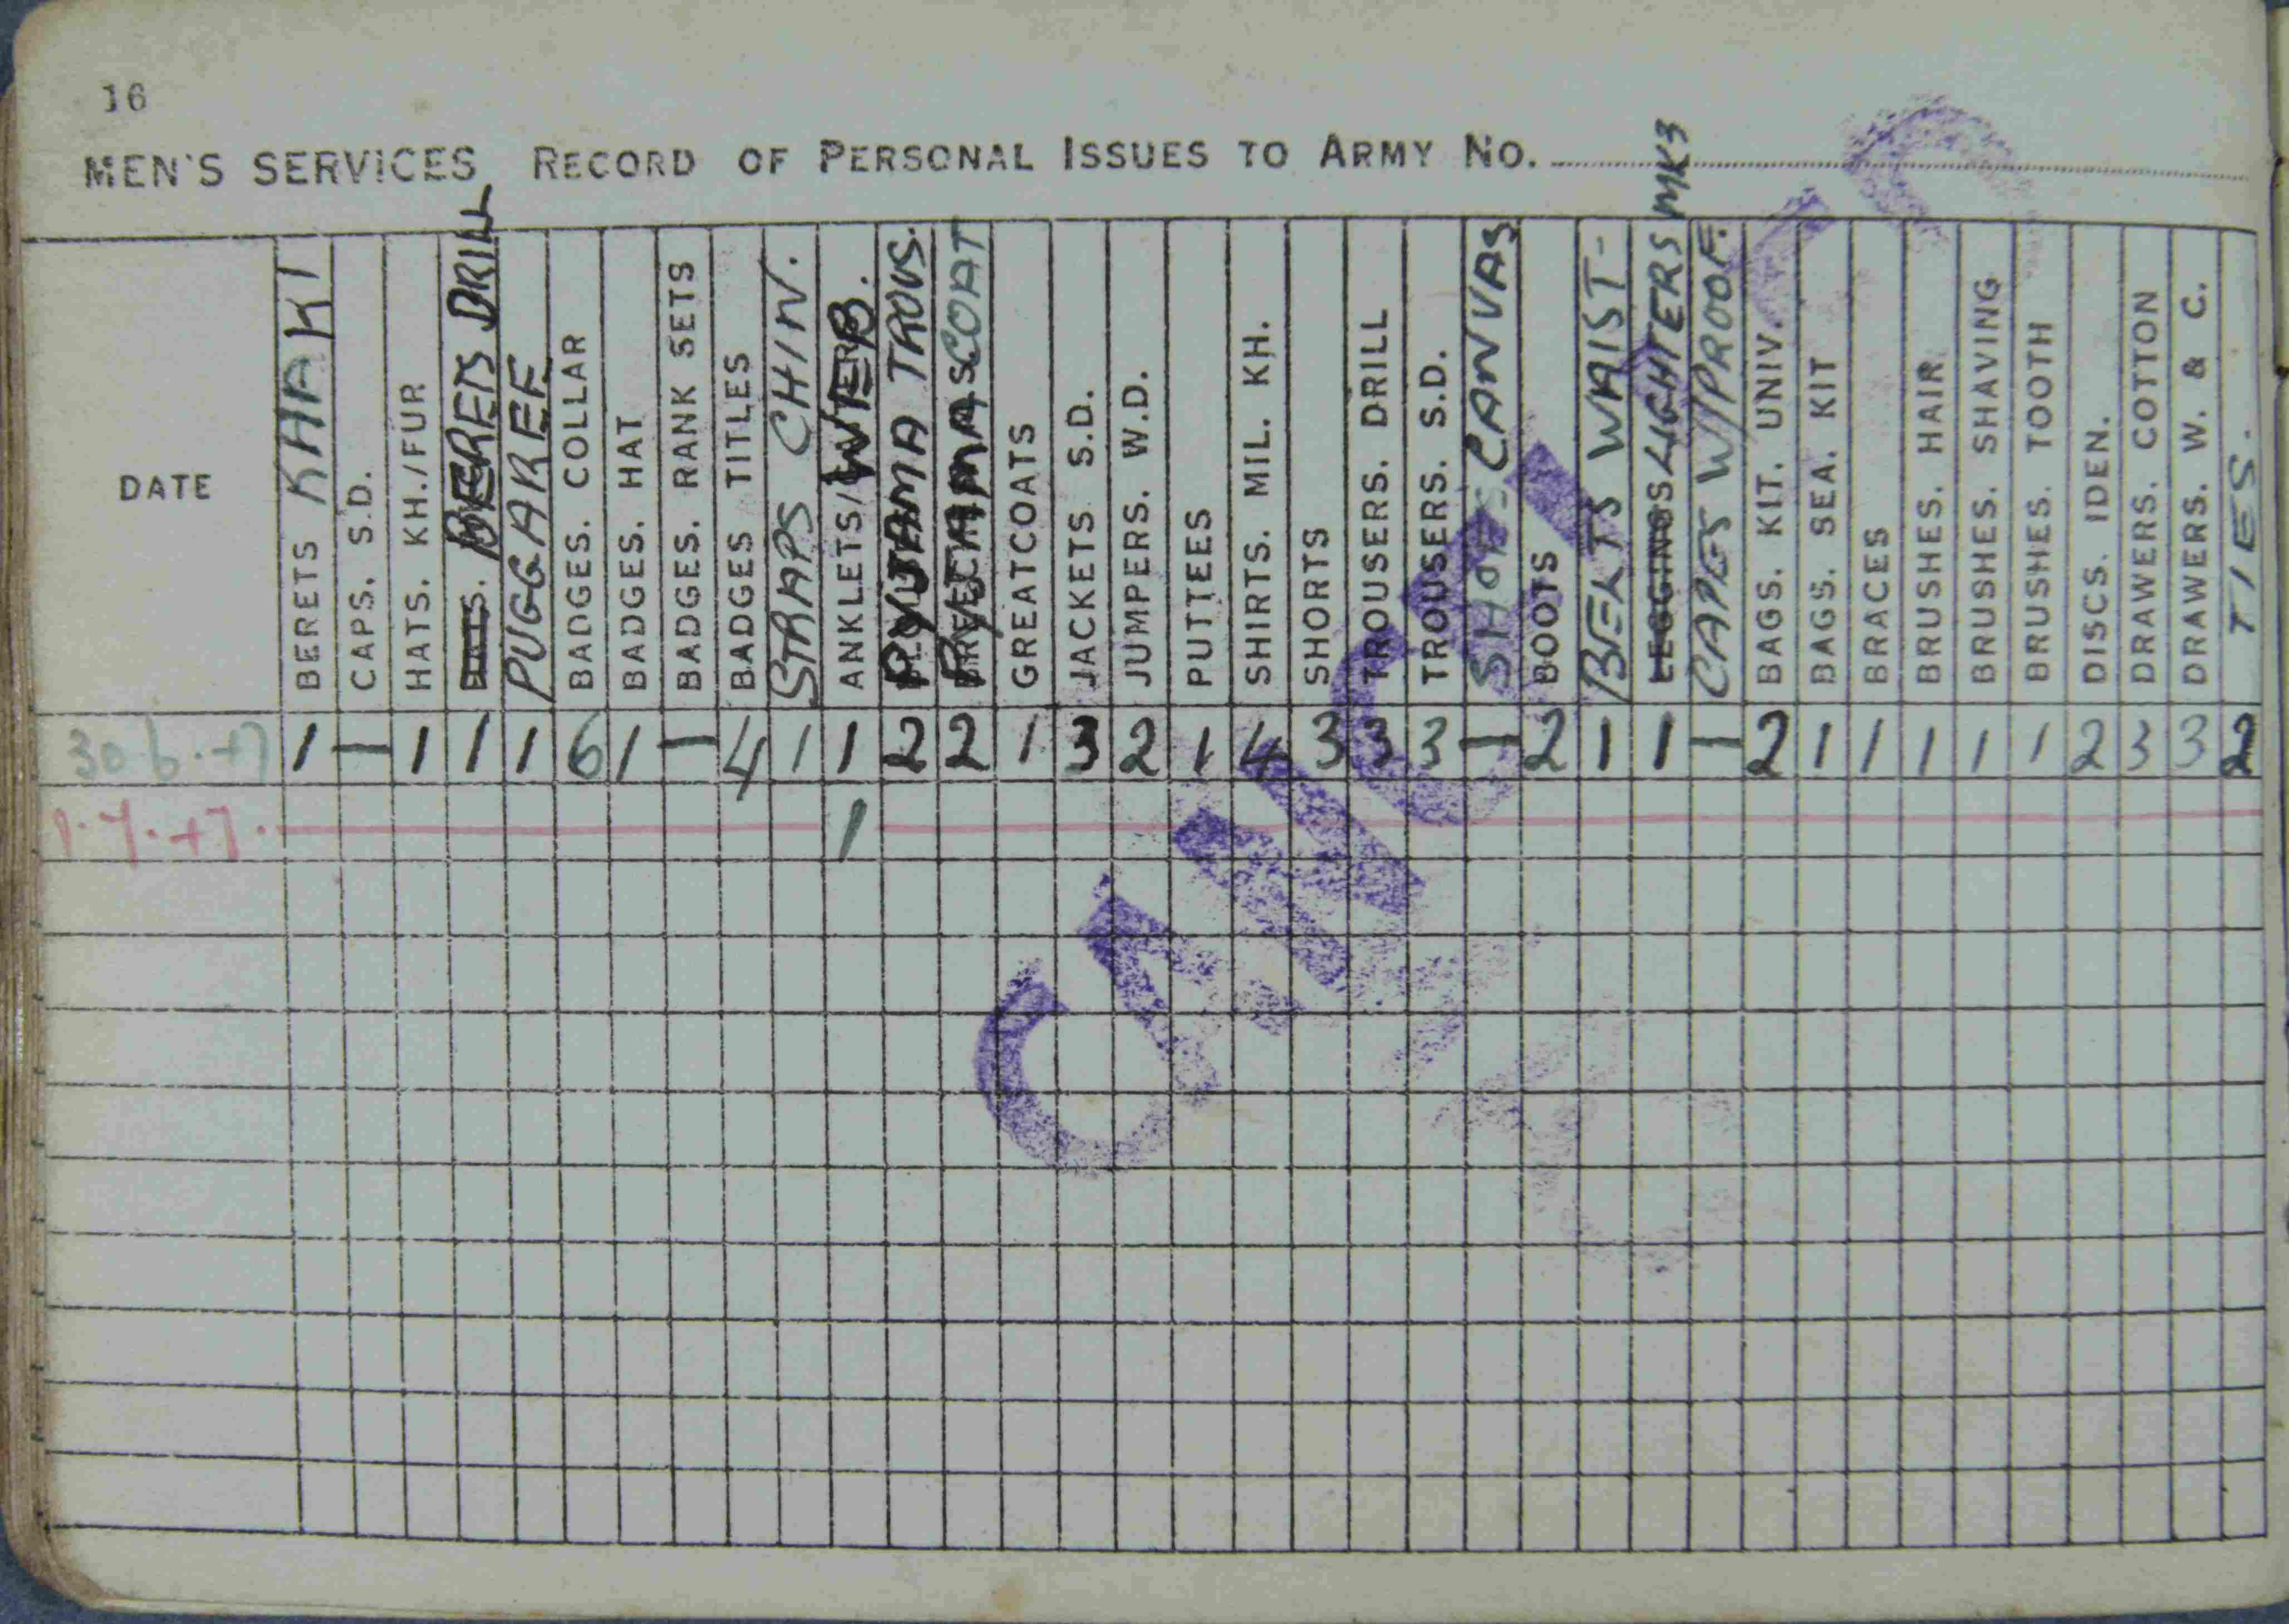 16
MEN'S SERVICES RECORD OF PERSONAL ISSUES TO ARMY NO.
DATE
BERETS KHAKI
CAPS. S.D.
HATS. KH./FUR
HATS. BERETS DRILL
PUGGAREE
BADGES. COLLAR
BADGES. HAT
BADGES. RANK SETS
BADGES TITLES
STRAPS CHIN.
ANKLETS/WEB.
PYJAMA TROUS.
PYJAMAS COAT
GREATCOATS
JACKETS S.D.
JUMPERS. W.D.
PUTTEES
SHIRTS. MIL. KH.
SHORTS
TROUSERS. DRILL
TROUSERS. S.D.
SHOES CANVAS
BOOTS
BELTS WAIST-
LEGGINGS LIGHTERS MK3
CAPES W/PROOF.
BAGS. KIT. UNIV.
BAGS. SEA. KIT
BRACES
BRUSHES. HAIR
BRUSHES. SHAVING
BRUSHES. TOOTH
DISCS. IDEN.
DRAWERS. COTTON
DRAWERS. W. & C.
TIES.
30 6.47 1 — 1 1 1 6 1 — 4 1 1 2 2 1 3 2 1 4 3 3 3 — 2 1 1 — 2 1 1 1 1 1 2 3 3 2
1.7.47. 1